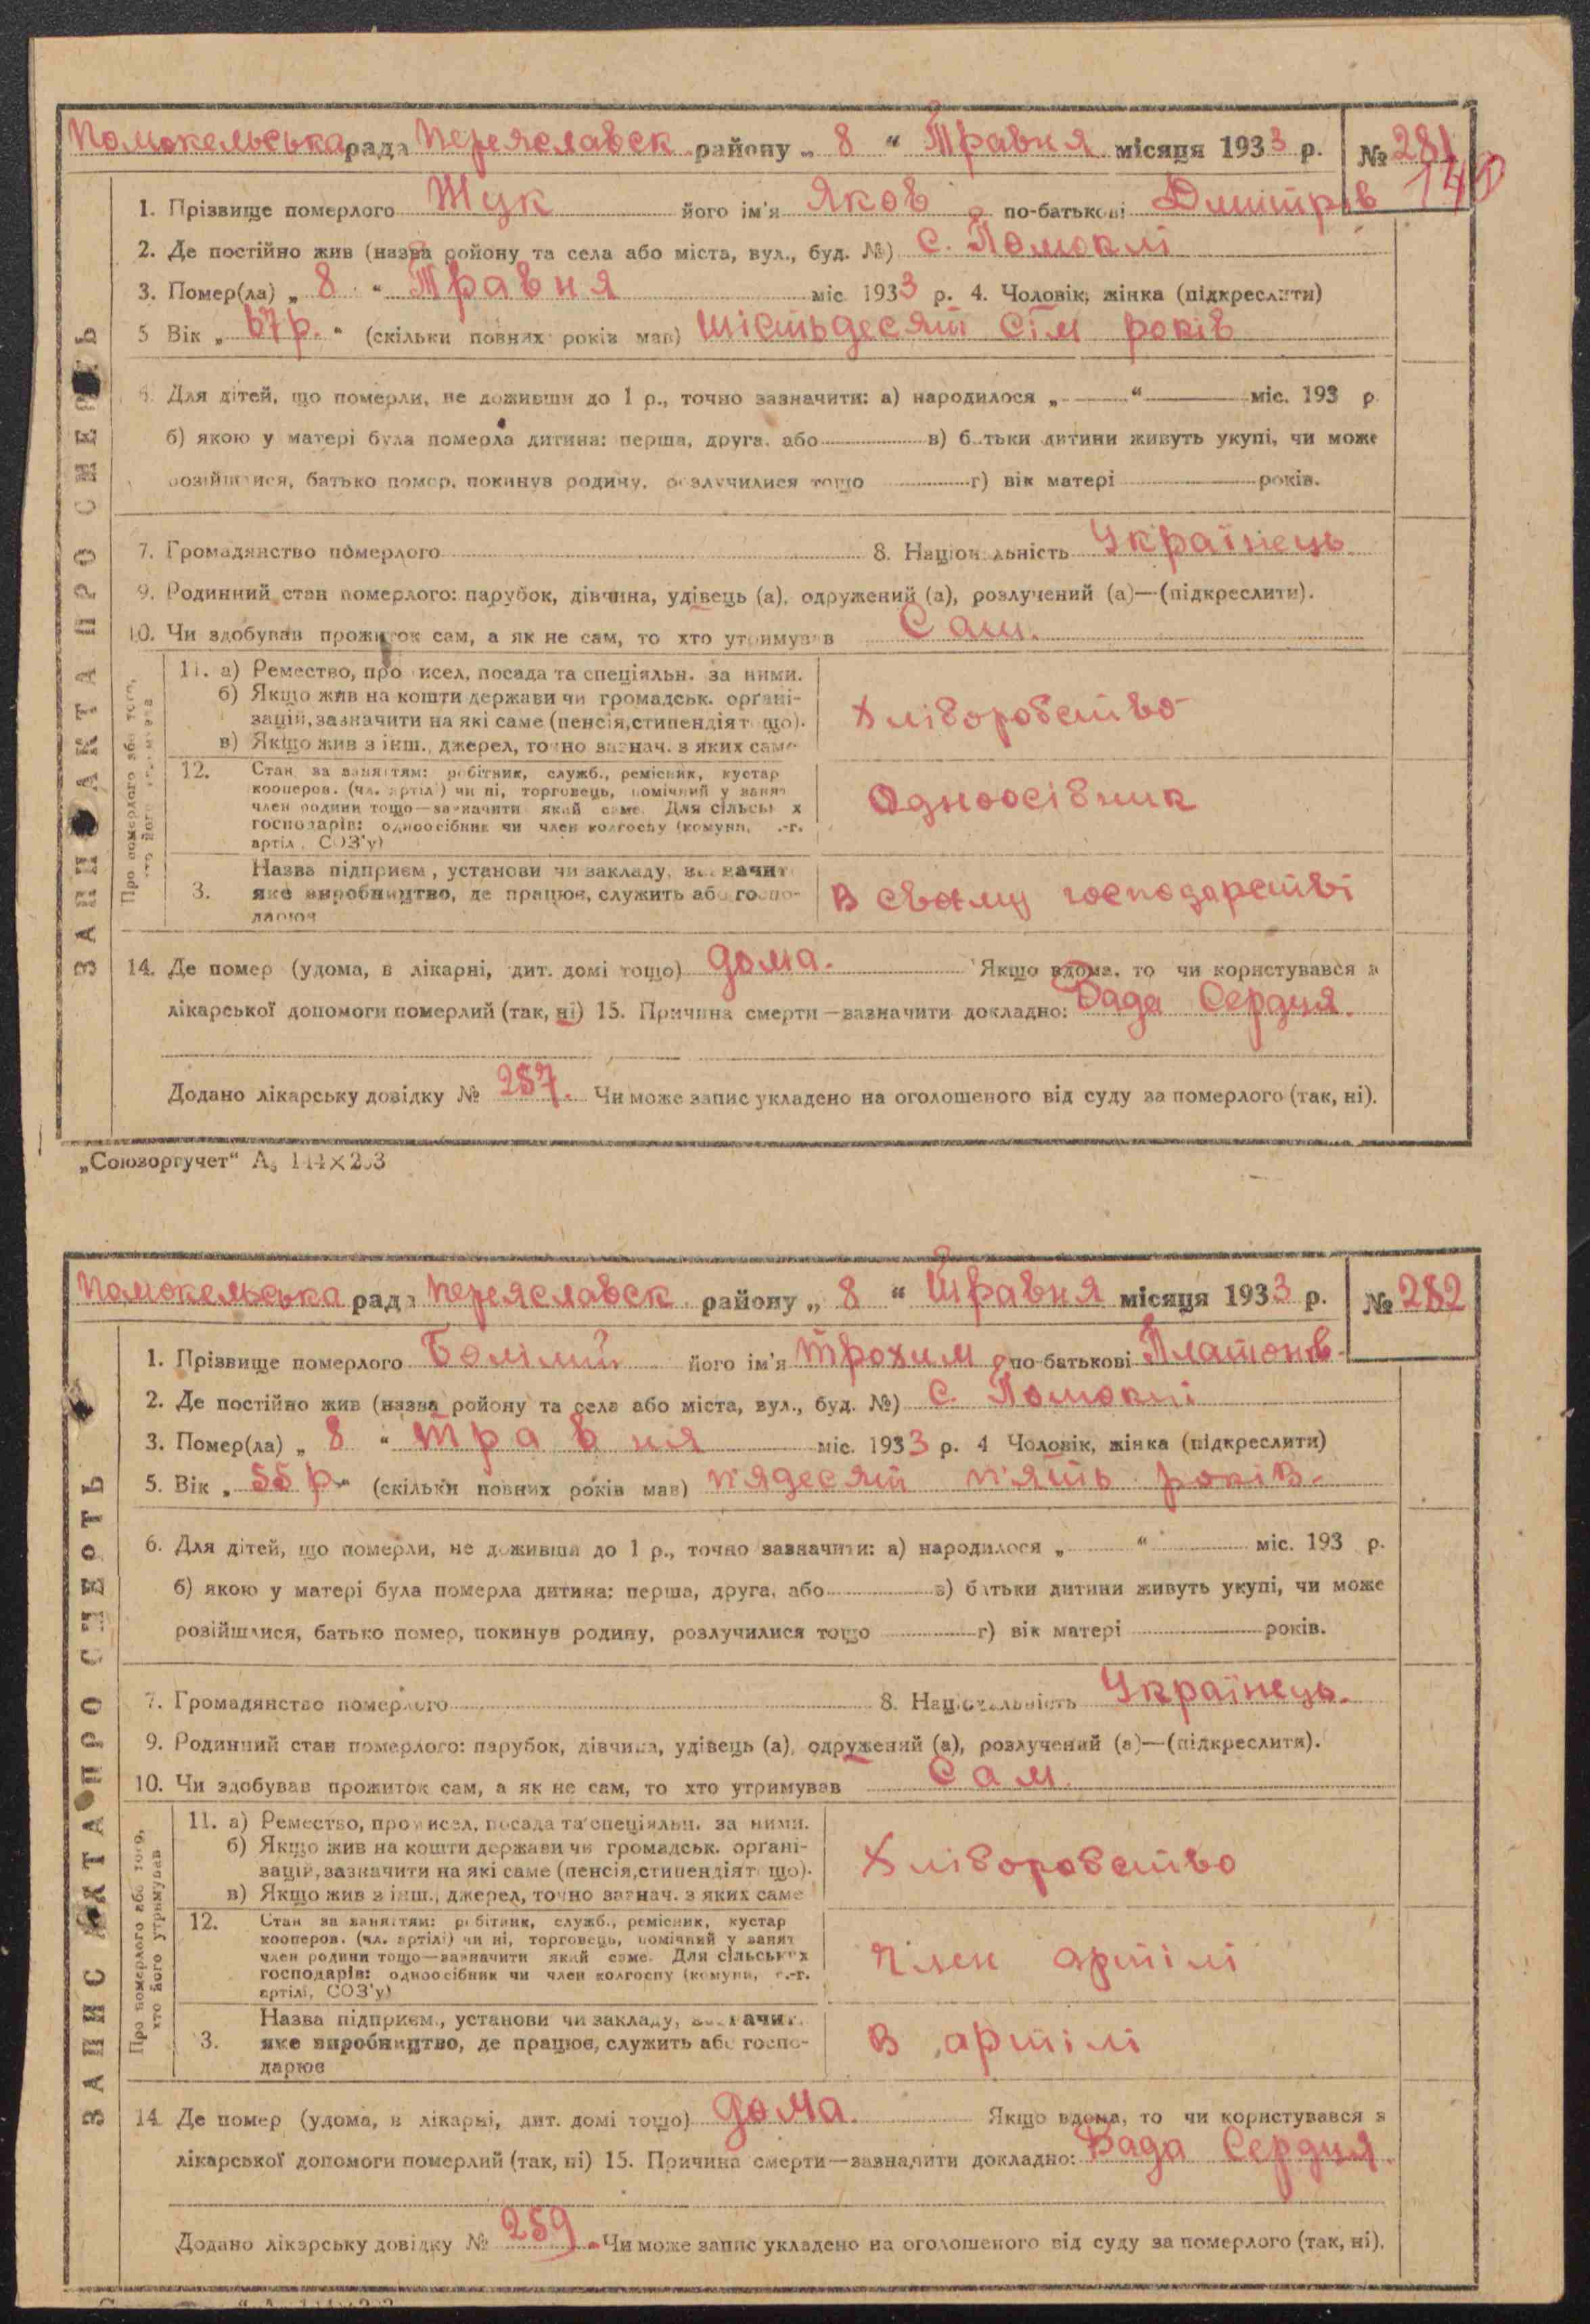 Помокельська рада Переяславск району „ 8 “ Травня місяця 1933 р. № 281
140
1. Прізвище померлого Жук його ім'я Яков по-батькові Дмитрів
2. Де постійно жив (назва ройону та села або міста, вул., буд. №) с. Помоклі
3. Помер(ла) „ 8 “ Травня міс 1933 р. 4. Чоловік, жінка (підкреслити)
5 Вік „ 67 р. “ (скільки повних років мав) шістьдесят сім років
6. Для дітей, що померли, не доживши до 1 р., точно зазначити: а) народилося „ “ міс. 193 р.
б) якою у матері була померла дитина: перша, друга, або в) батьки дитини живуть укупі, чи може
розійшлися, батько помер, покинув родину, розлучилися тощо г) вік матері років.
7. Громадянство померлого 8. Національність Українець
9. Родинний стан померлого: парубок, дівчина, удівець (а), одружений (а), розлучений (а)—(підкреслити).
10. Чи здобував прожиток сам, а як не сам, то хто утримував Сам.
11. а) Ремество, промисел, посада та спеціяльн. за ними.
б) Якщо жив на кошти держави чи громадськ. органі-
зацій, зазначити на які саме (пенсія, стипендія тощо).
в) Якщо жив з інш., джерел, точно зазнач. з яких саме
Хліборобство
12. Стан за заняттям: робітник, служб., ремісник, кустар
кооперов. (чл. артілі) чи ні, торговець, помічний у занят
член родини тощо—зазначити який саме. Для сільських
господарів: одноосібник чи член колгоспу (комуни, с.-г.
артіл, СОЗ'у)
Одноосібник
3. Назва підприєм, установи чи закладу, зазначит
яке виробництво, де працює, служить або госпо-
дарює
В своему господарстві
14. Де помер (удома, в лікарні, дит. домі тощо) дома. Якщо вдома, то чи користувався з
лікарської допомоги померлий (так, ні) 15. Причина смерти—зазначити докладно: Вада Серця.
Додано лікарську довідку № 257. Чи може запис укладено на оголошеного від суду за померлого (так, ні).
ЗАПИС АКТА ПРО СМЕРТЬ
Про померлого або того,
хто його утримував
„Союзоргучет“ А₅ 144×203
Помокельська рада Переяславск району „ 8 “ Травня місяця 1933 р. № 282
1. Прізвище померлого його ім'я Трохим по-батькові Платонов
2. Де постійно жив (назва ройону та села або міста, вул., буд. №) с. Помоклі
3. Помер(ла) „ 8 “ травня міс. 1933 р. 4 Чоловік, жінка (підкреслити)
5. Вік „ 55 р “ (скільки повних років мав) п'ядесят п'ять років.
6. Для дітей, що померли, не доживши до 1 р., точно зазначити: а) народилося „ “ міс. 193 р.
б) якою у матері була померла дитина: перша, друга, або в) батьки дитини живуть укупі, чи може
розійшлися, батько помер, покинув родину, розлучилися тощо г) вік матері років.
7. Громадянство померлого 8. Національність Українець.
9. Родинний стан померлого: парубок, дівчина, удівець (а), одружений (а), розлучений (а)—(підкреслити).
10. Чи здобував прожиток сам, а як не сам, то хто утримував Сам.
11. а) Ремество, промисел, посада та спеціяльн. за ними.
б) Якщо жив на кошти держави чи громадськ. органі-
зацій, зазначити на які саме (пенсія, стипендія тощо).
в) Якщо жив з інш., джерел, точно зазнач. з яких саме
Хліборобство
12. Стан за заняттям: робітник, служб., ремісник, кустар
кооперов. (чл. артілі) чи ні, торговець, помічний у занят
член родини тощо—зазначити який саме. Для сільських
господарів: одноосібник чи член колгоспу (комуни, с.-г.
артілі, СОЗ'у)
Член артілі
3. Назва підприєм., установи чи закладу, зазначит.
яке виробництво, де працює, служить або госпо-
дарює
В артілі
14. Де помер (удома, в лікарні, дит. домі тощо) дома. Якщо вдома, то чи користувався з
лікарської допомоги померлий (так, ні) 15. Причина смерти—зазначити докладно: Вада Серця.
Додано лікарську довідку № 259. Чи може запис укладено на оголошеного від суду за померлого (так, ні).
ЗАПИС АКТА ПРО СМЕРТЬ
Про померлого або того,
хто його утримував